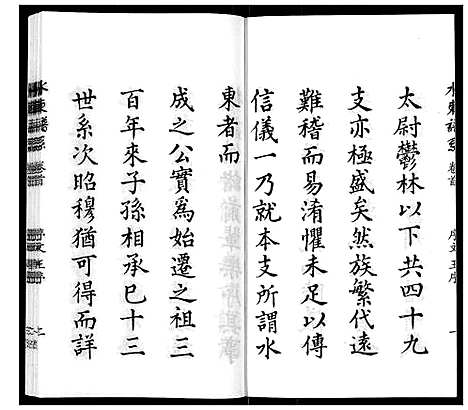 太尉鬱林以下共四十九
支亦極盛矣然族繁代遠
難稽而易淆懼未足以傳
信儀一乃就本支所謂水
東者而
成之公實為始遷之祖三
百年來子孫相承已十三
世系次昭穆猶可得而詳